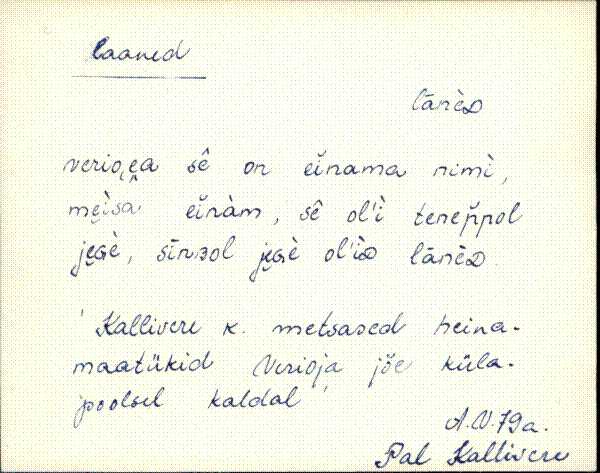 Laaned
lānèD
verioi̯ea sê on eĭnama nimì,
mèisa eĭnàm, sê ol'ì teneppol
jeGè, sīnɜol jeGè ol'ìD lānèD
' Kallivere k. metsased heina-
maatükid Verioja jõe küla-
poolsel kaldal '
A.V. 79a.
Pal Kallivere